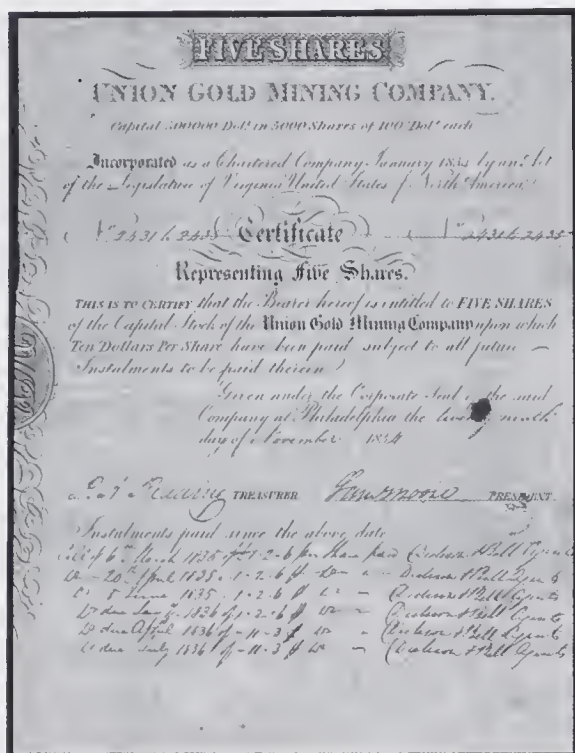 FIVE SHARES
UNION GOLD MINING COMPANY.
Capital 500000 Dolˢ in 5000 Shares of 100 Dolˢ each
Incorporated as a Chartered Company January 1834 by an Act
of the Legislature of Virginia United States of North America
Nº 2431 to 2435 Certificate Nº 2431 to 2435
Representing Five Shares.
THIS IS TO CERTIFY that the Bearer hereof is entitled to FIVE SHARES
of the Capital Stock of the Union Gold Mining Company upon which
Ten Dollars Per Share have been paid subject to all future
Instalments to be paid therein
Given under the Corporate Seal of the said
Company at Philadelphia the twenty ninth
day of November 1834
TREASURER PRESIDENT.
Instalments paid since the above date
6th March 1835 of 1-2-6 per share paid & Bell Agents
Do 20th April 1835 1-2-6 Do & Bell Agents
June 1835 1-2-6 & Bell Agents
Do due Jany 1836 of 1-2-6 Do & Bell Agents
Do due April 1836 of -11-3 Do & Bell Agents
Do due July 1836 of -11-3 Do & Bell Agents